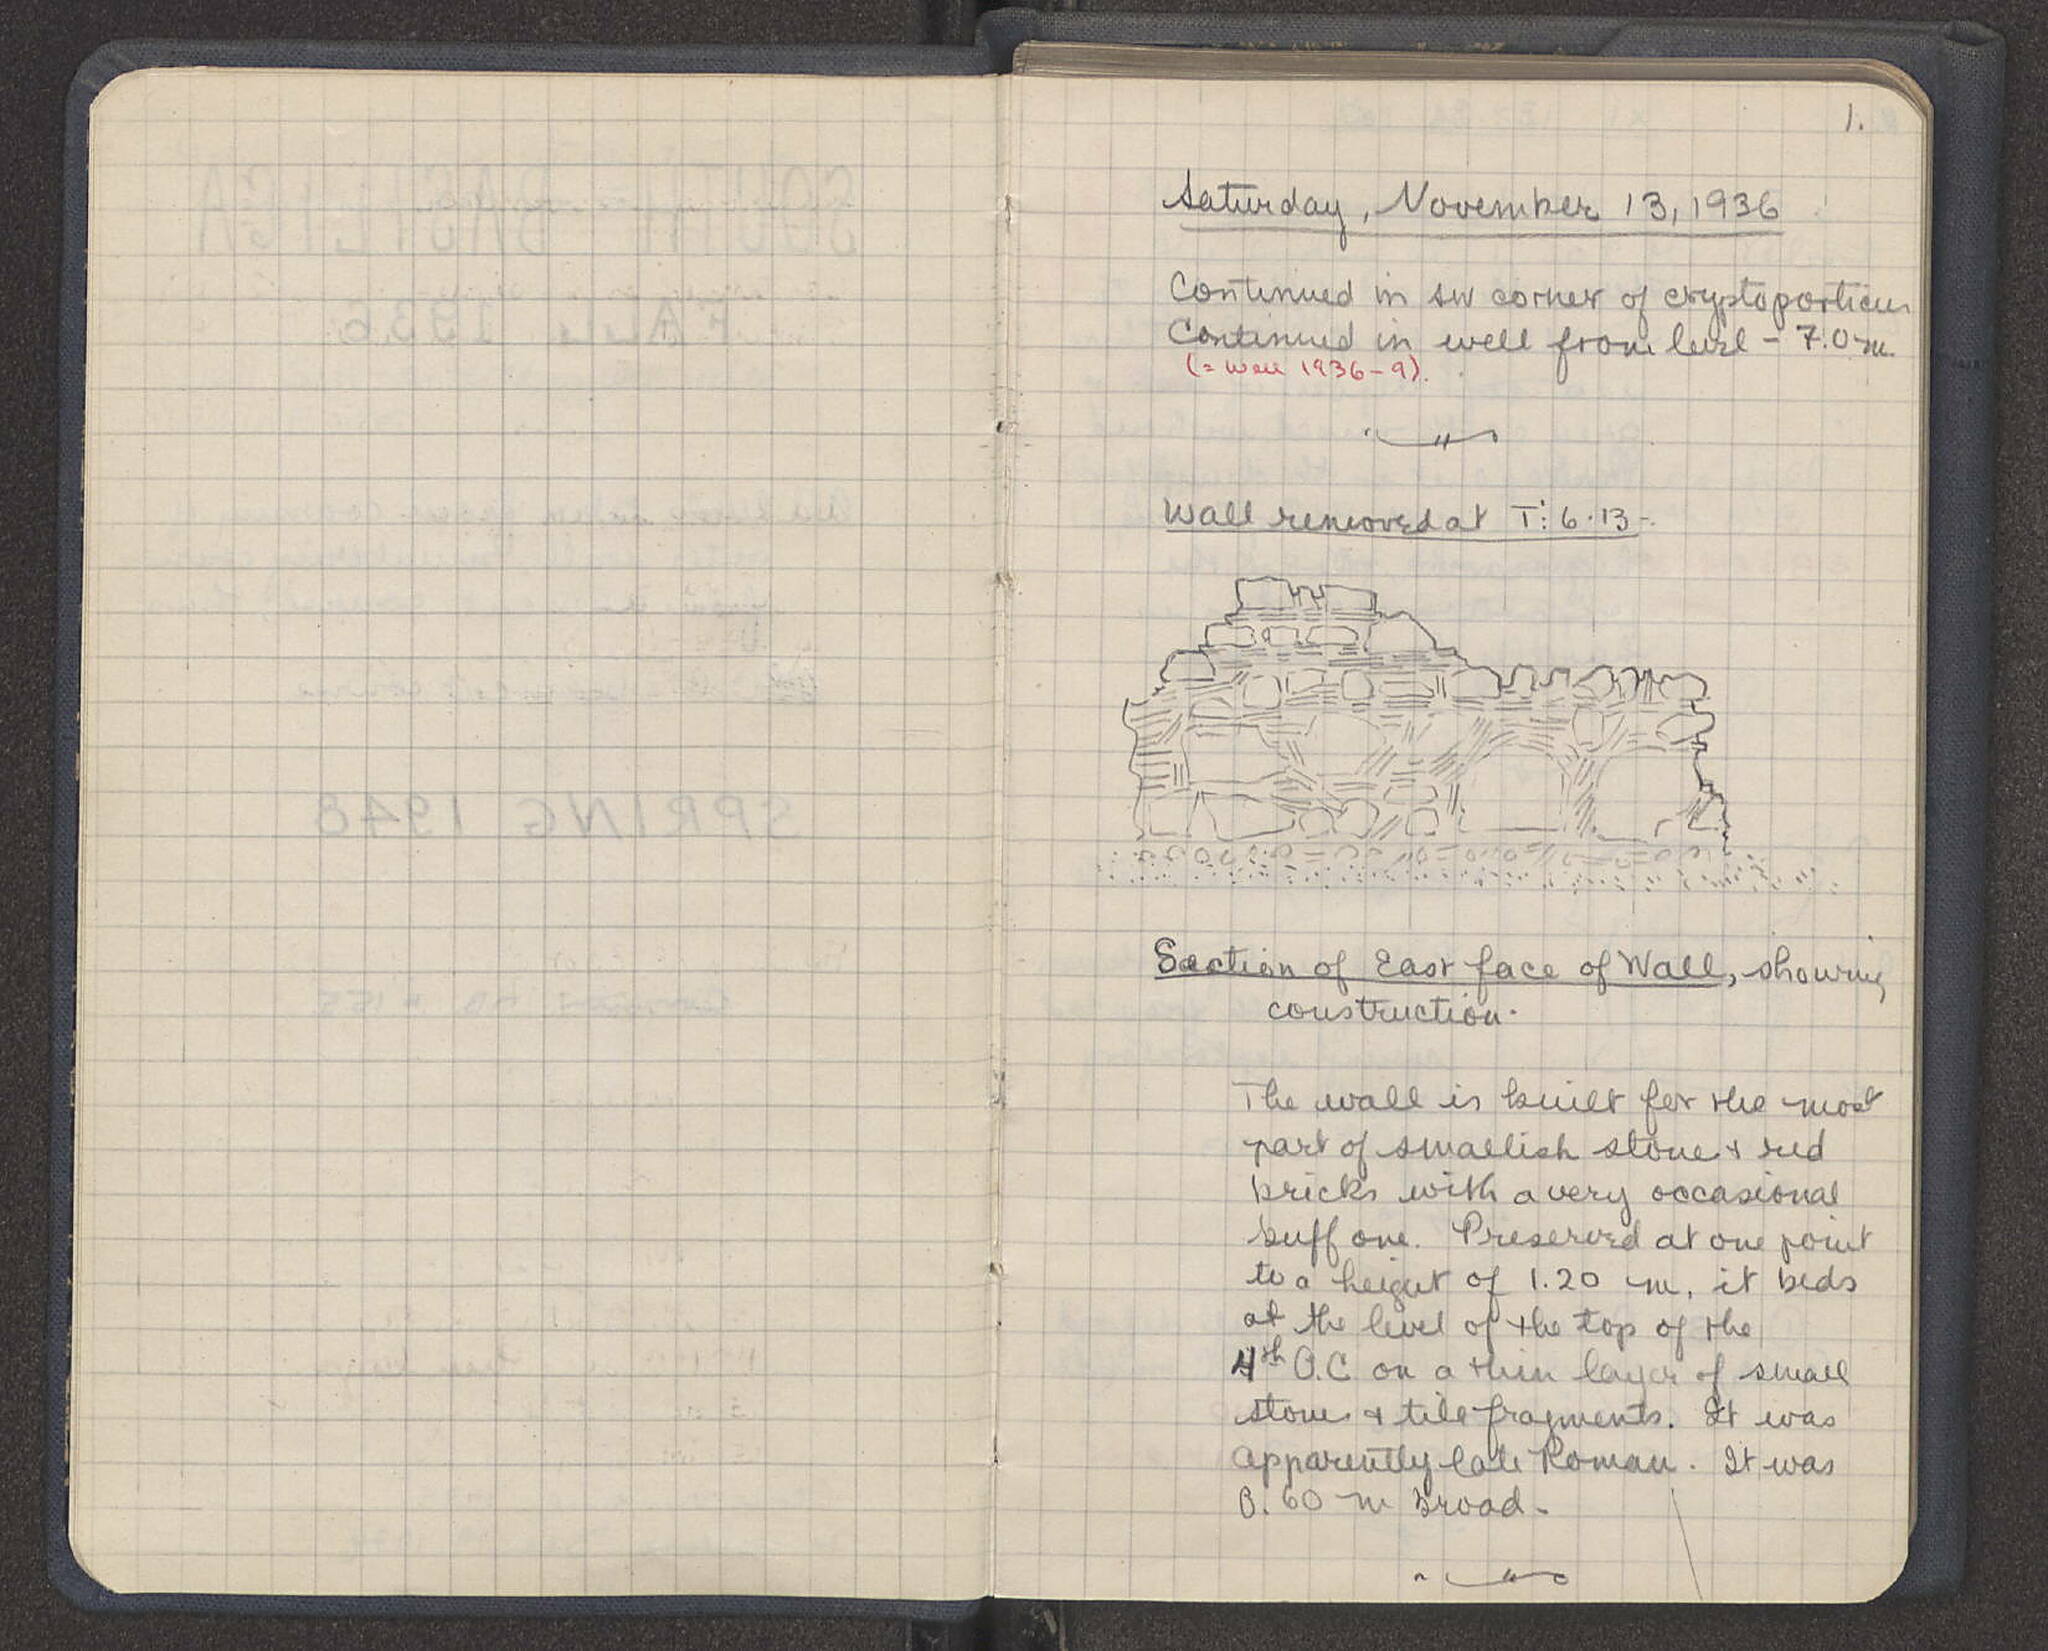 1.
Saturday, November 13, 1936
Continued in SW corner of cryptoporticus
Continued in well from level - 7.0 m.
(= well 1936-9).
Wall removed at T: 6.13-.
Section of East face of Wall, showing
construction.
The wall is built for the most
part of smallish stone & red
bricks with a very occasional
buff one. Preserved at one point
to a height of 1.20 m, it beds
at the level of the top of the
4th O.C on a thin layer of small
stones & tile fragments. It was
apparently late Roman. It was
0.60 m broad.
SOUTH BASILICA
FALL 1936
SPRING 1948